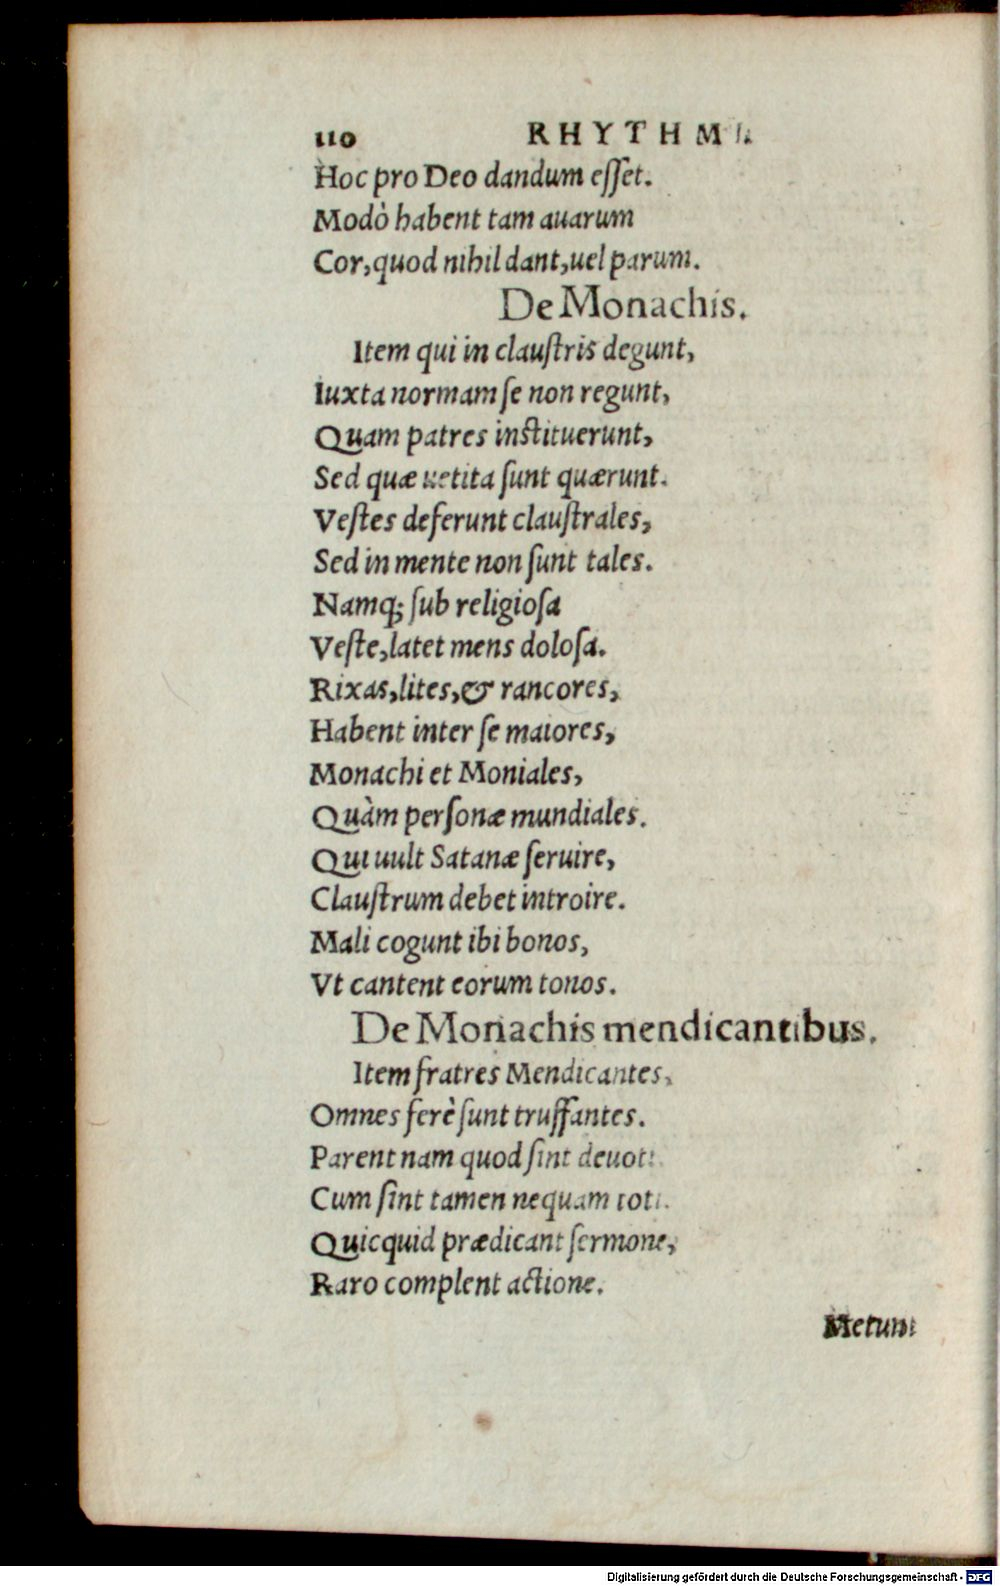 110 RHYTHMI.
Hoc pro Deo dandum eſſet.
Modò habent tam auarum
Cor, quod nihil dant, uel parum.
De Monachis.
Item qui in clauſtris degunt,
Iuxta normam ſe non regunt,
Quam patres inſtituerunt,
Sed quæ uetita ſunt quærunt.
Veſtes deferunt clauſtrales,
Sed in mente non ſunt tales.
Namq; ſub religioſa
Veſte, latet mens doloſa.
Rixas, lites, & rancores,
Habent inter ſe maiores,
Monachi et Moniales,
Quàm perſonæ mundiales.
Qui uult Satanæ ſeruire,
Clauſtrum debet introire.
Mali cogunt ibi bonos,
Vt cantent eorum tonos.
De Monachis mendicantibus.
Item fratres Mendicantes,
Omnes ferè ſunt truffantes.
Parent nam quod ſint deuoti
Cum ſint tamen nequam toti.
Quicquid prædicant ſermone,
Raro complent actione.
Metunt
Digitalisierung gefördert durch die Deutsche Forschungsgemeinschaft - DFG